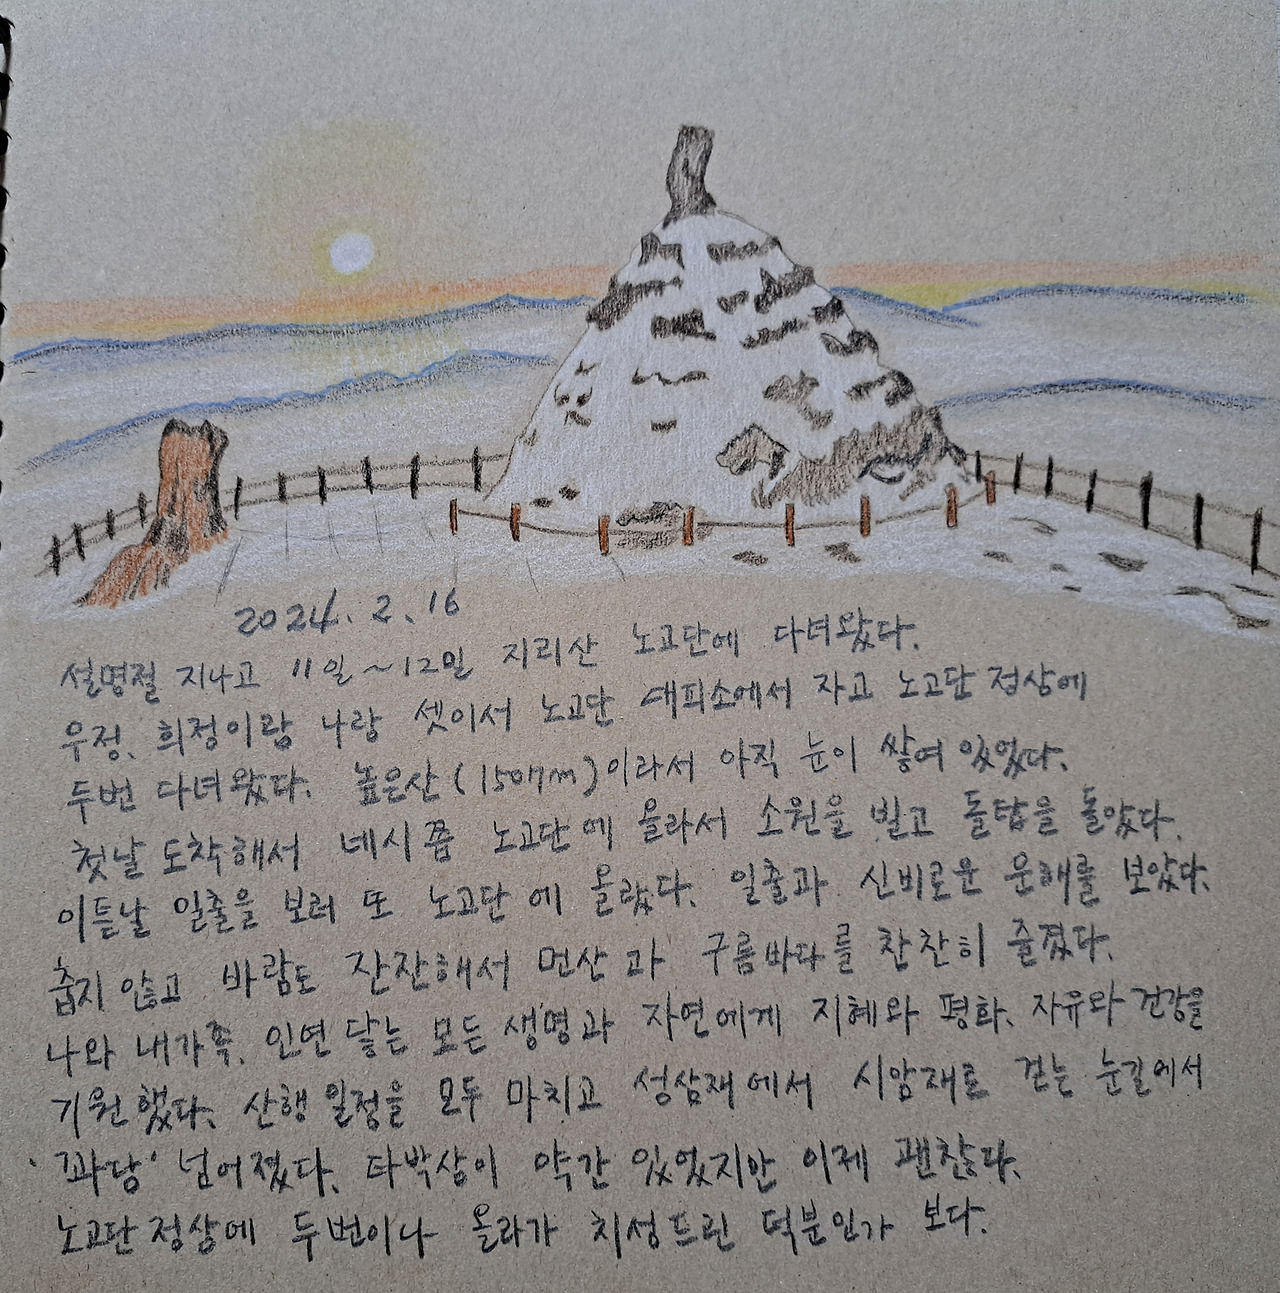 2024. 2. 16
설명절 지나고 11일~12일 지리산 노고단에 다녀왔다.
우정, 희정이랑 나랑 셋이서 노고단 대피소에서 자고 노고단 정상에
두번 다녀왔다. 높은산(1507m)이라서 아직 눈이 쌓여 있었다.
첫날 도착해서 네시쯤 노고단에 올라서 소원을 빌고 돌탑을 돌았다.
이튿날 일출을 보러 또 노고단에 올랐다. 일출과 신비로운 운해를 보았다.
춥지 않고 바람도 잔잔해서 먼산과 구름바다를 찬찬히 즐겼다.
나와 내가족, 인연 닿는 모든 생명과 자연에게 지혜와 평화, 자유와 건강을
기원했다. 산행 일정을 모두 마치고 성삼재에서 시암재로 걷는 눈길에서
'꽈당' 넘어졌다. 타박상이 약간 있었지만 이제 괜찮다.
노고단 정상에 두번이나 올라가 치성드린 덕분인가 보다.